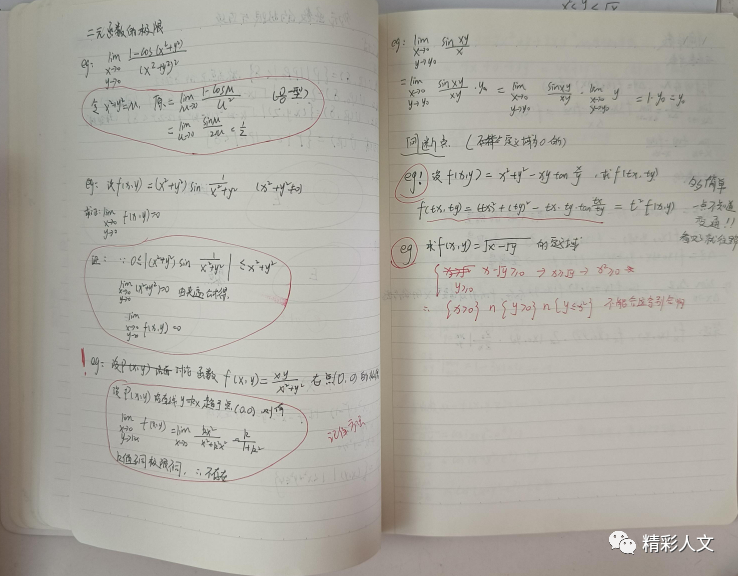 二元函数的极限
eg: lim x→0 y→0 1-cos(x²+y²) / (x²+y²)²
令x²+y²=u, 原= lim u→0 1-cosu / u² (0/0型)
= lim u→0 sinu / 2u = 1/2
eg: 设f(x,y)=(x²+y²) sin 1/(x²+y²) (x²+y²≠0)
求证: lim x→0 y→0 f(x,y)=0
证: ∵ 0≤|(x²+y²) sin 1/(x²+y²)| ≤ x²+y²
lim x→0 y→0 (x²+y²)=0
lim x→0 y→0 f(x,y)=0
! eg: 讨论函数 f(x,y)= xy/(x²+y²) 在点(0,0)的
趋于点(0,0) 则有
lim x→0 y→kx f(x,y) = lim x→0 kx²/(x²+k²x²) = k/(1+k²)
k值不同极限不同, ∴不存在
记住方法
x<y<√x
eg: lim x→0 y→y₀ sinxy / x
= lim x→0 y→y₀ sinxy/xy · y₀ = lim x→0 y→y₀ sinxy/xy · lim x→0 y→y₀ y = 1·y₀=y₀
间断点
eg! 设 f(x,y) = x²+y²-xy tan x/y, 求f(tx,ty)
f(tx,ty) = (tx)²+(ty)²-tx·ty·tan tx/ty = t² f(x,y)
简单
一点不知道
变通!!
eg 求f(x,y)=√(x-√y) 的定义域
{ x-√y≥0 → x≥√y → x²≥
y≥0
∴ {x≥0} ∩ {y≥0} ∩ {y≤x²}
精彩人文